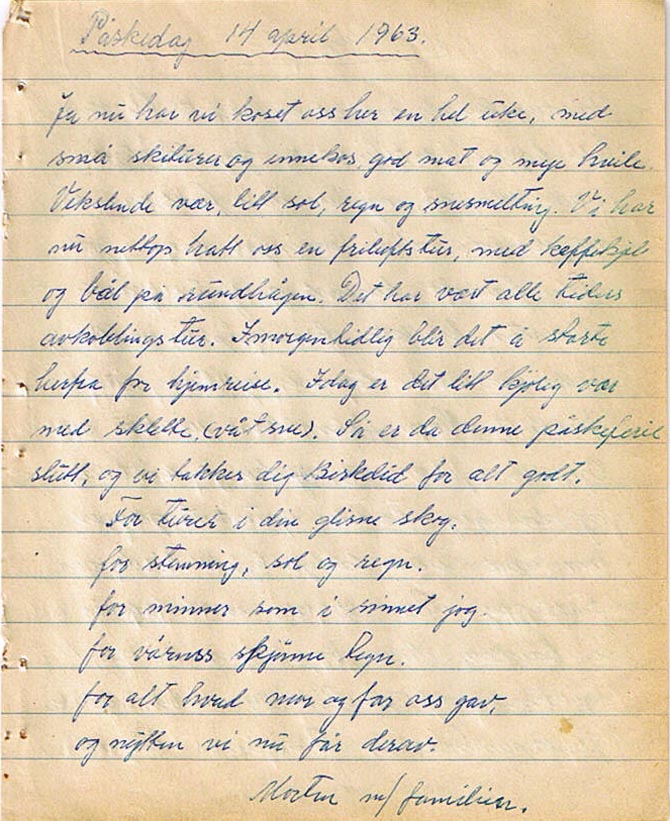 Påskedag 14 april 1963.
Ja nu har vi koset oss her en hel uke, med
små skiturer og innekos, god mat og mye hvile.
Vekslende vær, litt sol, regn og snesmelting. Vi har
nu nettopp hatt oss en friluftstur, med kaffekjel
og bål på rundhågen. Det har vært alle tiders
avkoblingstur. Imorgentidlig blir det å starte
herfra for hjemreise. Idag er det litt kjølig vær
med sklette, (våt sne). Så er da denne påskeferie
slutt, og vi takker dig Biskelid for alt godt.
For turer i din glisne skog,
for stemning, sol og regn.
for minner som i sinnet jog.
for vårnss skjønne tegn.
for alt hvad mor og far oss gav,
og nytten vi nu får derav.
Morten m/ familien.